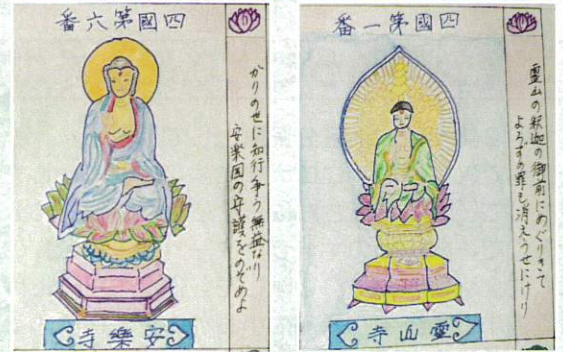 番六第國四
かりのせに知行争う無益なり
安楽国の守護をのぞめよ
寺樂安
番一第國四
霊山の釈迦の御前にめぐりきて
よろずの罪も消えうせにけり
寺山霊